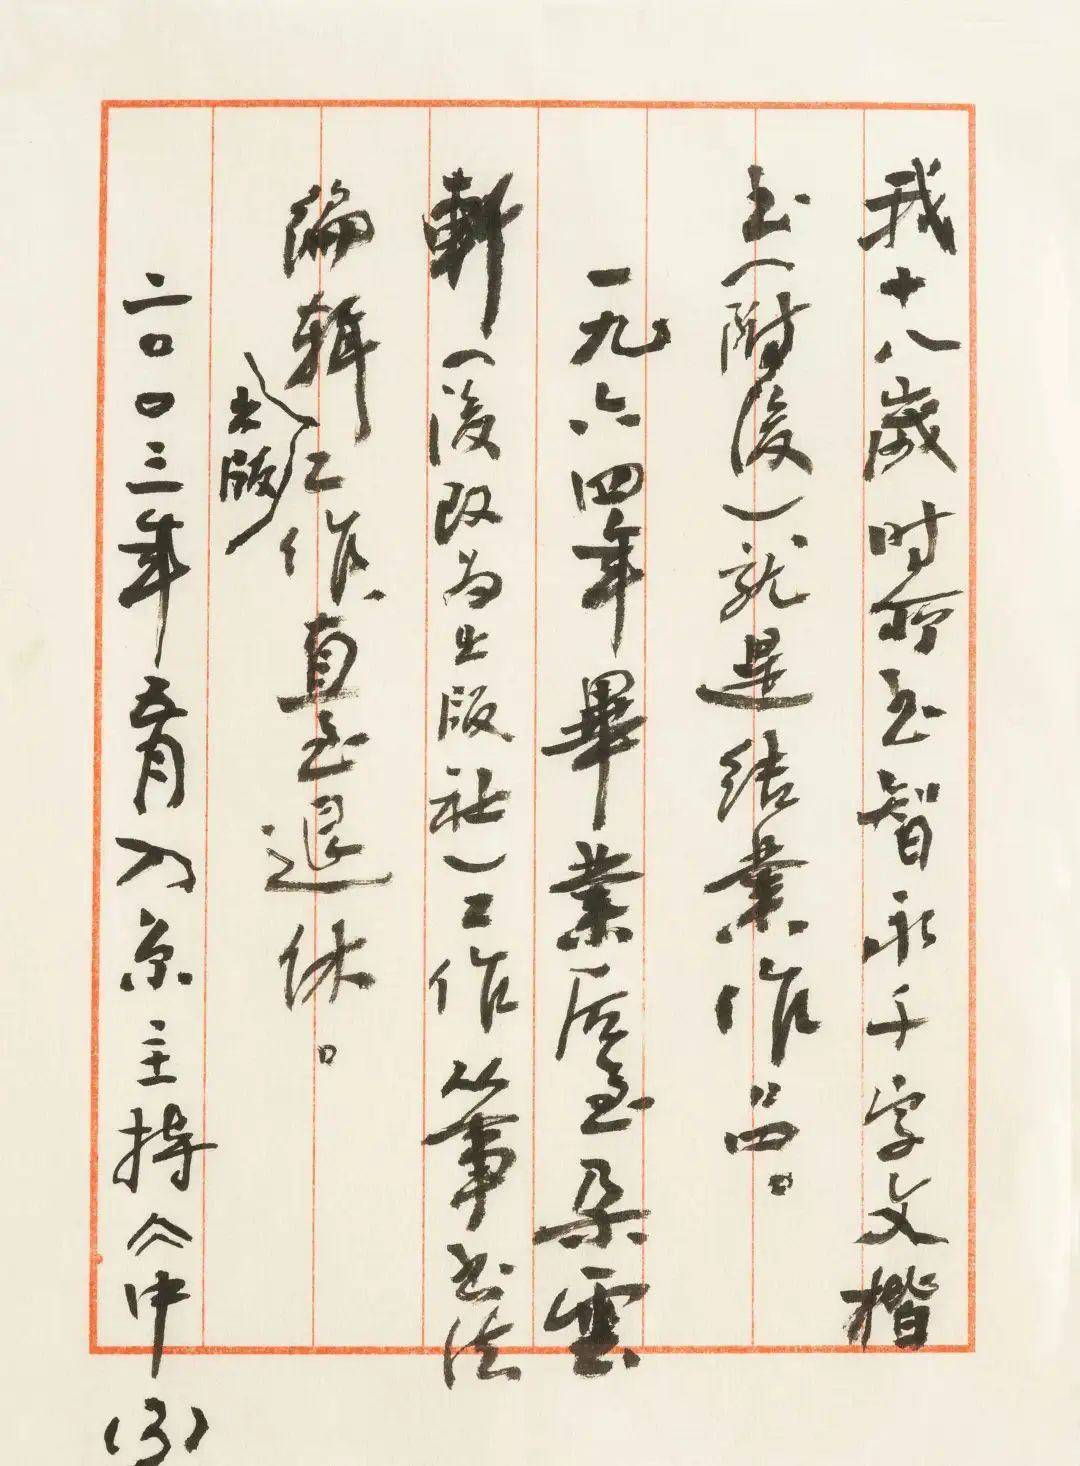 我十八歲时所书智永千字文楷
书(附後)就是结業作品。
一九六四年畢業后至朵雲
軒(後改为出版社)工作从事书法
編輯出版工作直至退休。
二〇〇三年育入京主持《中
(3)